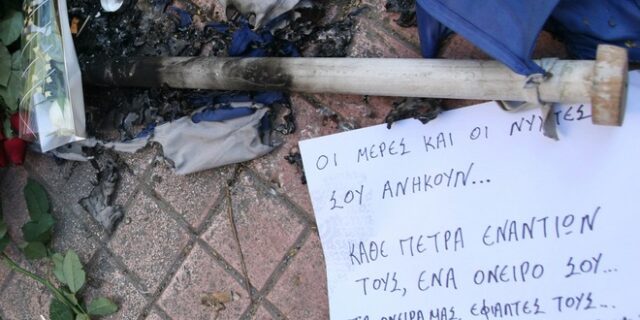 ΟΙ ΜΕΡΕΣ ΚΑΙ ΟΙ ΝΥΧΤΕΣ
ΣΟΥ ΑΝΗΚΟΥΝ...
ΚΑΘΕ ΠΕΤΡΑ ΕΝΑΝΤΙΩΝ
ΤΟΥΣ, ΕΝΑ ΟΝΕΙΡΟ ΣΟΥ...
ΤΑ ΟΝΕΙΡΑ ΜΑΣ, ΕΦΙΑΛΤΕΣ ΤΟΥΣ...